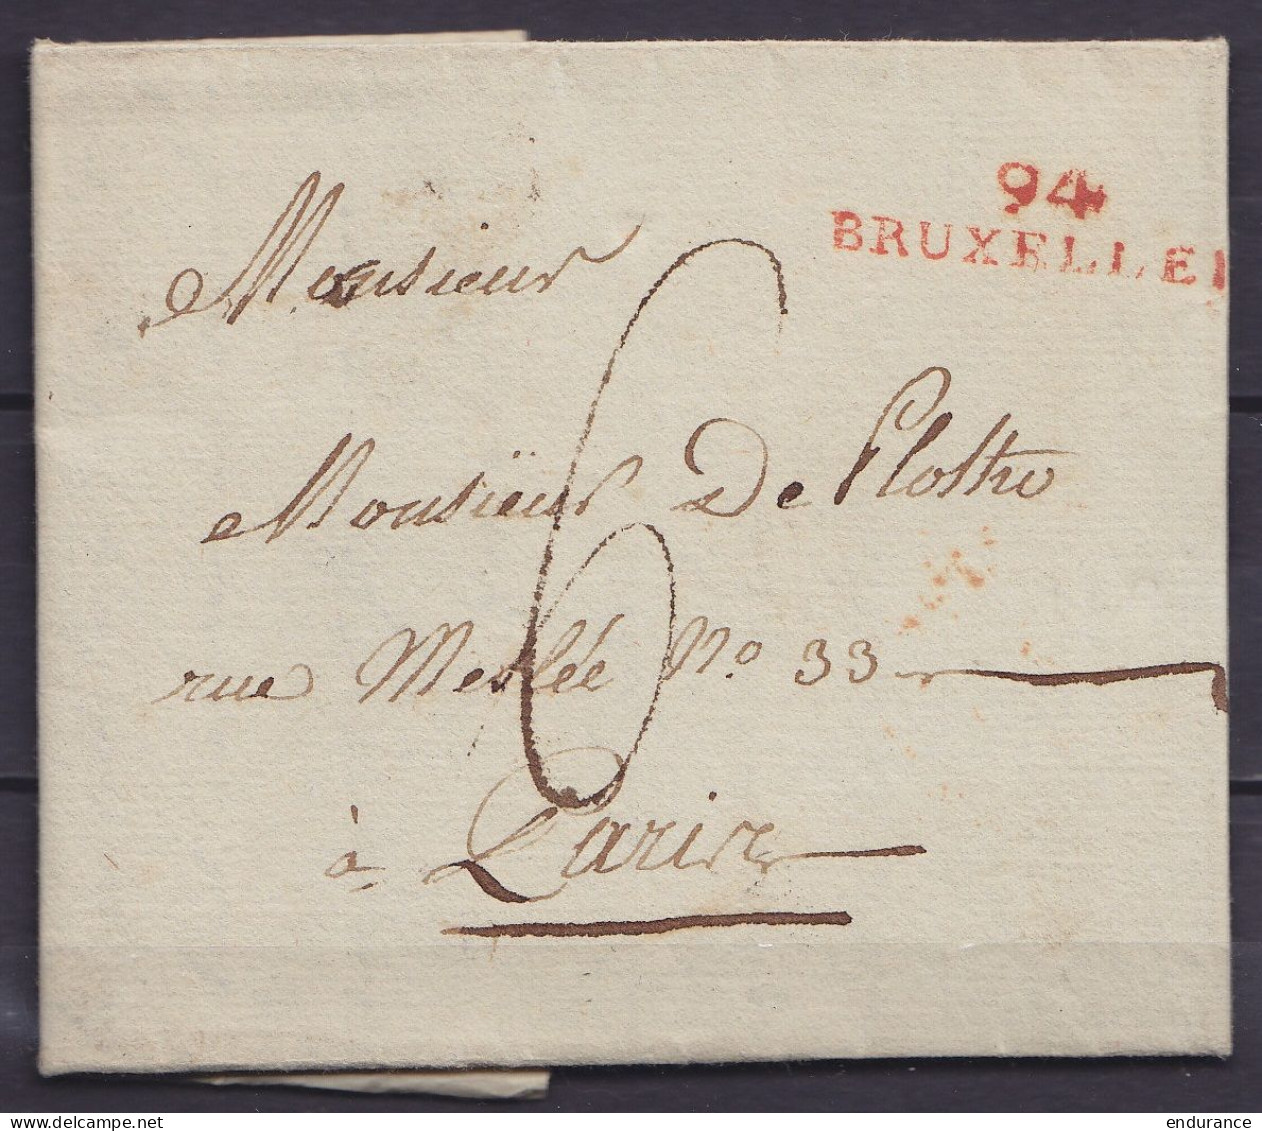 94
BRUXELLE
Monsieur
Monsieur De Plotho
rue Meslée No 33
à Paris
6
delcampe.net
endurance